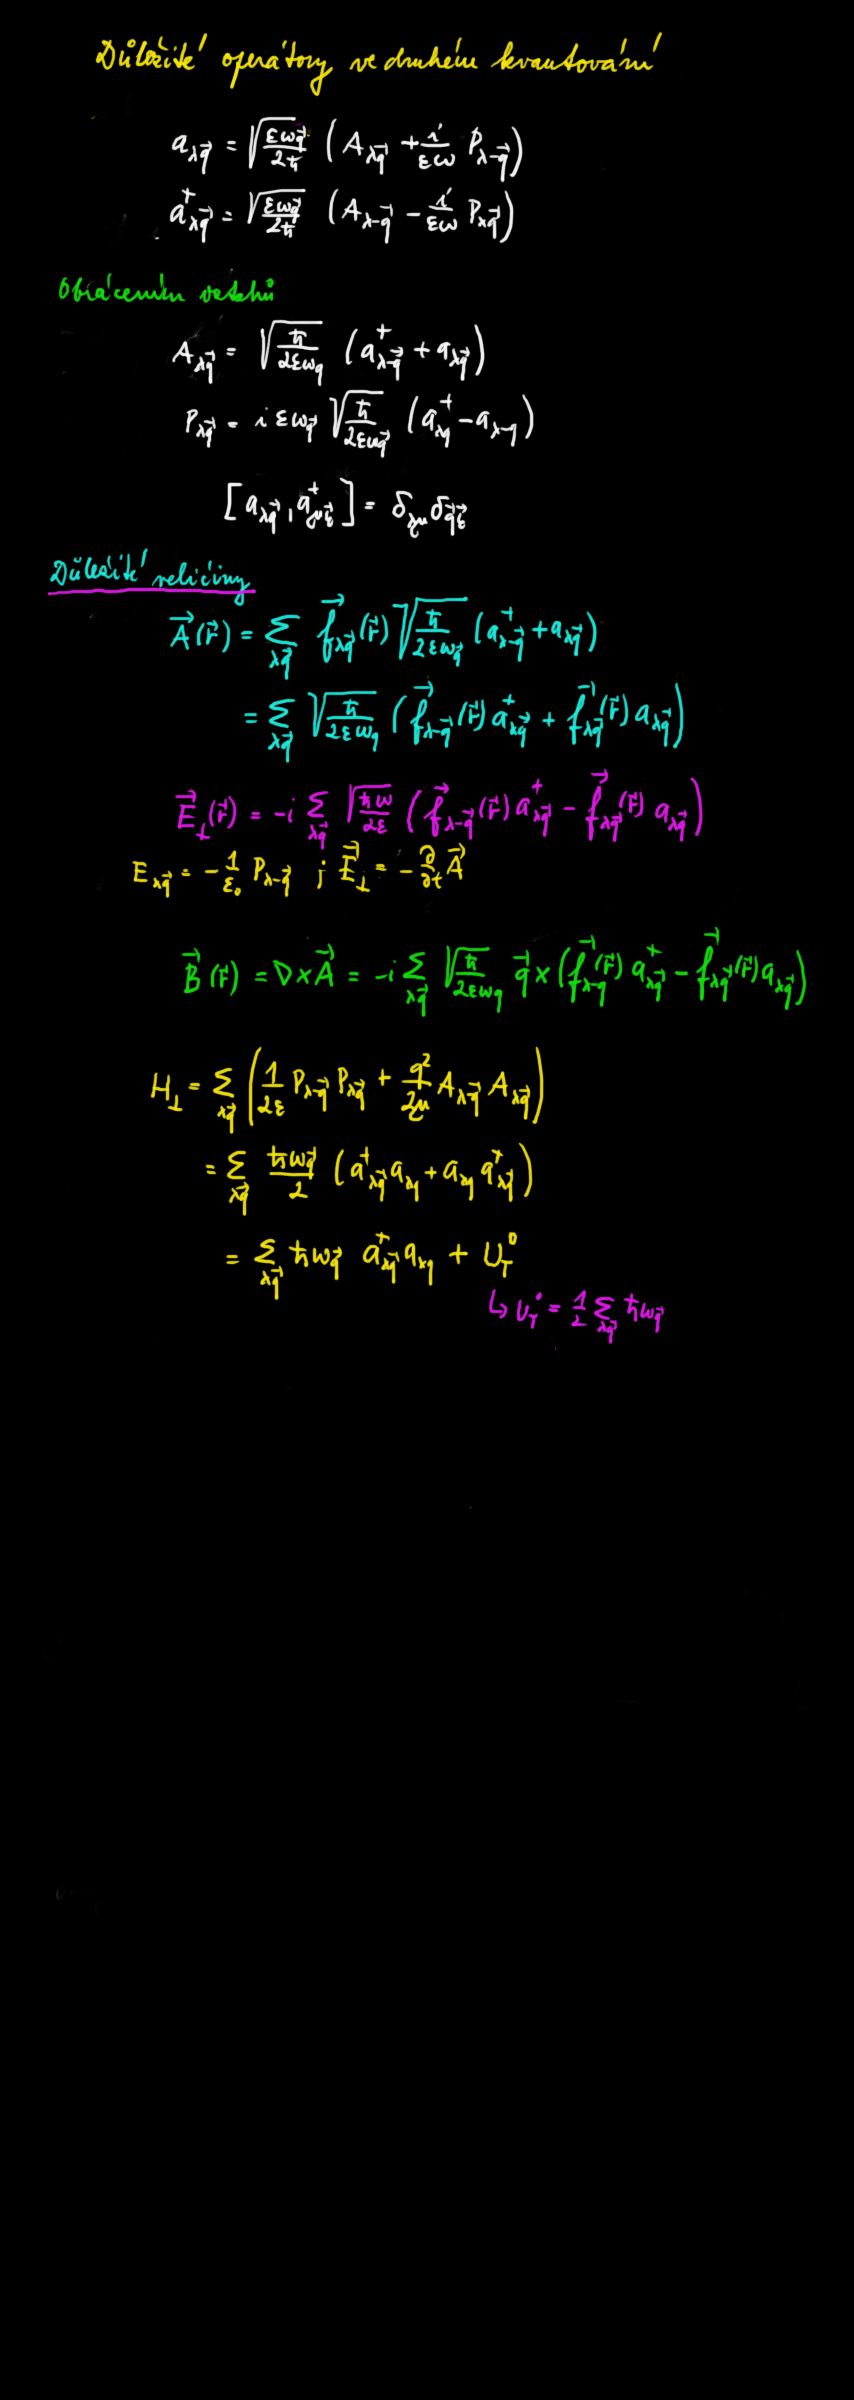 Důležité operátory ve druhém kvantování
a_{λq⃗} = √(εω_{q⃗}/2ħ) (A_{λq⃗} + i/(εω) P_{λ-q⃗})
a⁺_{λq⃗} = √(εω_{q⃗}/2ħ) (A_{λ-q⃗} - i/(εω) P_{λq⃗})
Obrácením vztahů
A_{λq⃗} = √(ħ/2εω_q) (a⁺_{λ-q⃗} + a_{λq⃗})
P_{λq⃗} = i εω_{q⃗} √(ħ/2εω_{q⃗}) (a⁺_{λq} - a_{λ-q})
[a_{λq⃗}, a⁺_{μk⃗}] = δ_{λμ} δ_{q⃗k⃗}
Důležité veličiny
A⃗(r⃗) = Σ_{λq⃗} f⃗_{λq⃗}(r⃗) √(ħ/2εω_{q⃗}) (a⁺_{λ-q⃗} + a_{λq⃗})
= Σ_{λq⃗} √(ħ/2εω_q) (f⃗_{λ-q⃗}(r⃗) a⁺_{λq⃗} + f⃗_{λq⃗}(r⃗) a_{λq⃗})
E⃗_⊥(r⃗) = -i Σ_{λq⃗} √(ħω/2ε) (f⃗_{λ-q⃗}(r⃗) a⁺_{λq⃗} - f⃗_{λq⃗}(r⃗) a_{λq⃗})
E_{λq⃗} = -1/ε₀ P_{λ-q⃗} ; E⃗_⊥ = -∂/∂t A⃗
B⃗(r⃗) = ∇×A⃗ = -i Σ_{λq⃗} √(ħ/2εω_q) q⃗ × (f⃗_{λ-q}(r⃗) a⁺_{λq⃗} - f⃗_{λq⃗}(r⃗) a_{λq⃗})
H_⊥ = Σ_{λq⃗} (1/2ε P_{λ-q⃗} P_{λq⃗} + q²/2μ A_{λ-q⃗} A_{λq⃗})
= Σ_{λq⃗} ħω_{q⃗}/2 (a⁺_{λq⃗} a_{λq} + a_{λq} a⁺_{λq⃗})
= Σ_{λq⃗} ħω_{q⃗} a⁺_{λq⃗} a_{λq} + U_T⁰
↳ U_T⁰ = 1/2 Σ_{λq⃗} ħω_{q⃗}